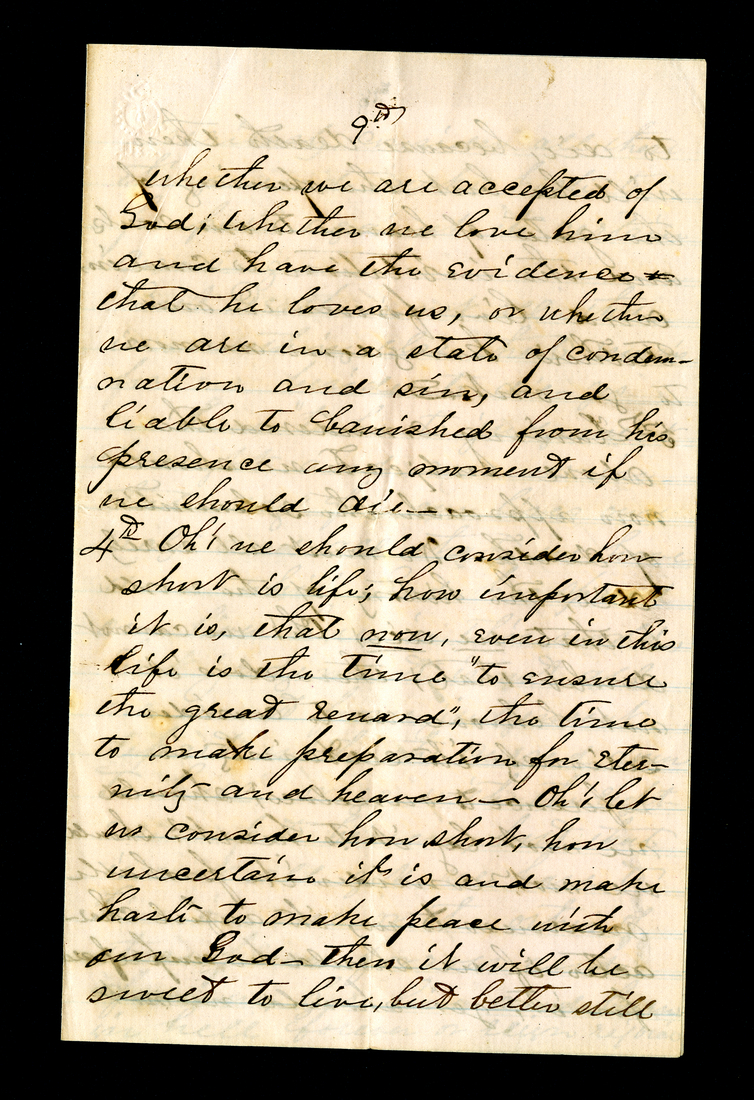 9th
whether we are accepted of
God; whether we love him
and have the evidence
that he loves us, or whether
we are in a state of condem-
nation and sin, and
liable to banished from his
presence any moment if
we should die—
4th Oh! we should consider how
short is life; how important
it is, that now, even in this
life is the time "to ensure
the great reward", the time
to make preparation for eter-
nity and heaven— Oh! let
us consider how short, how
uncertain it is and make
haste to make peace with
our God— then it will be
sweet to live, but better still